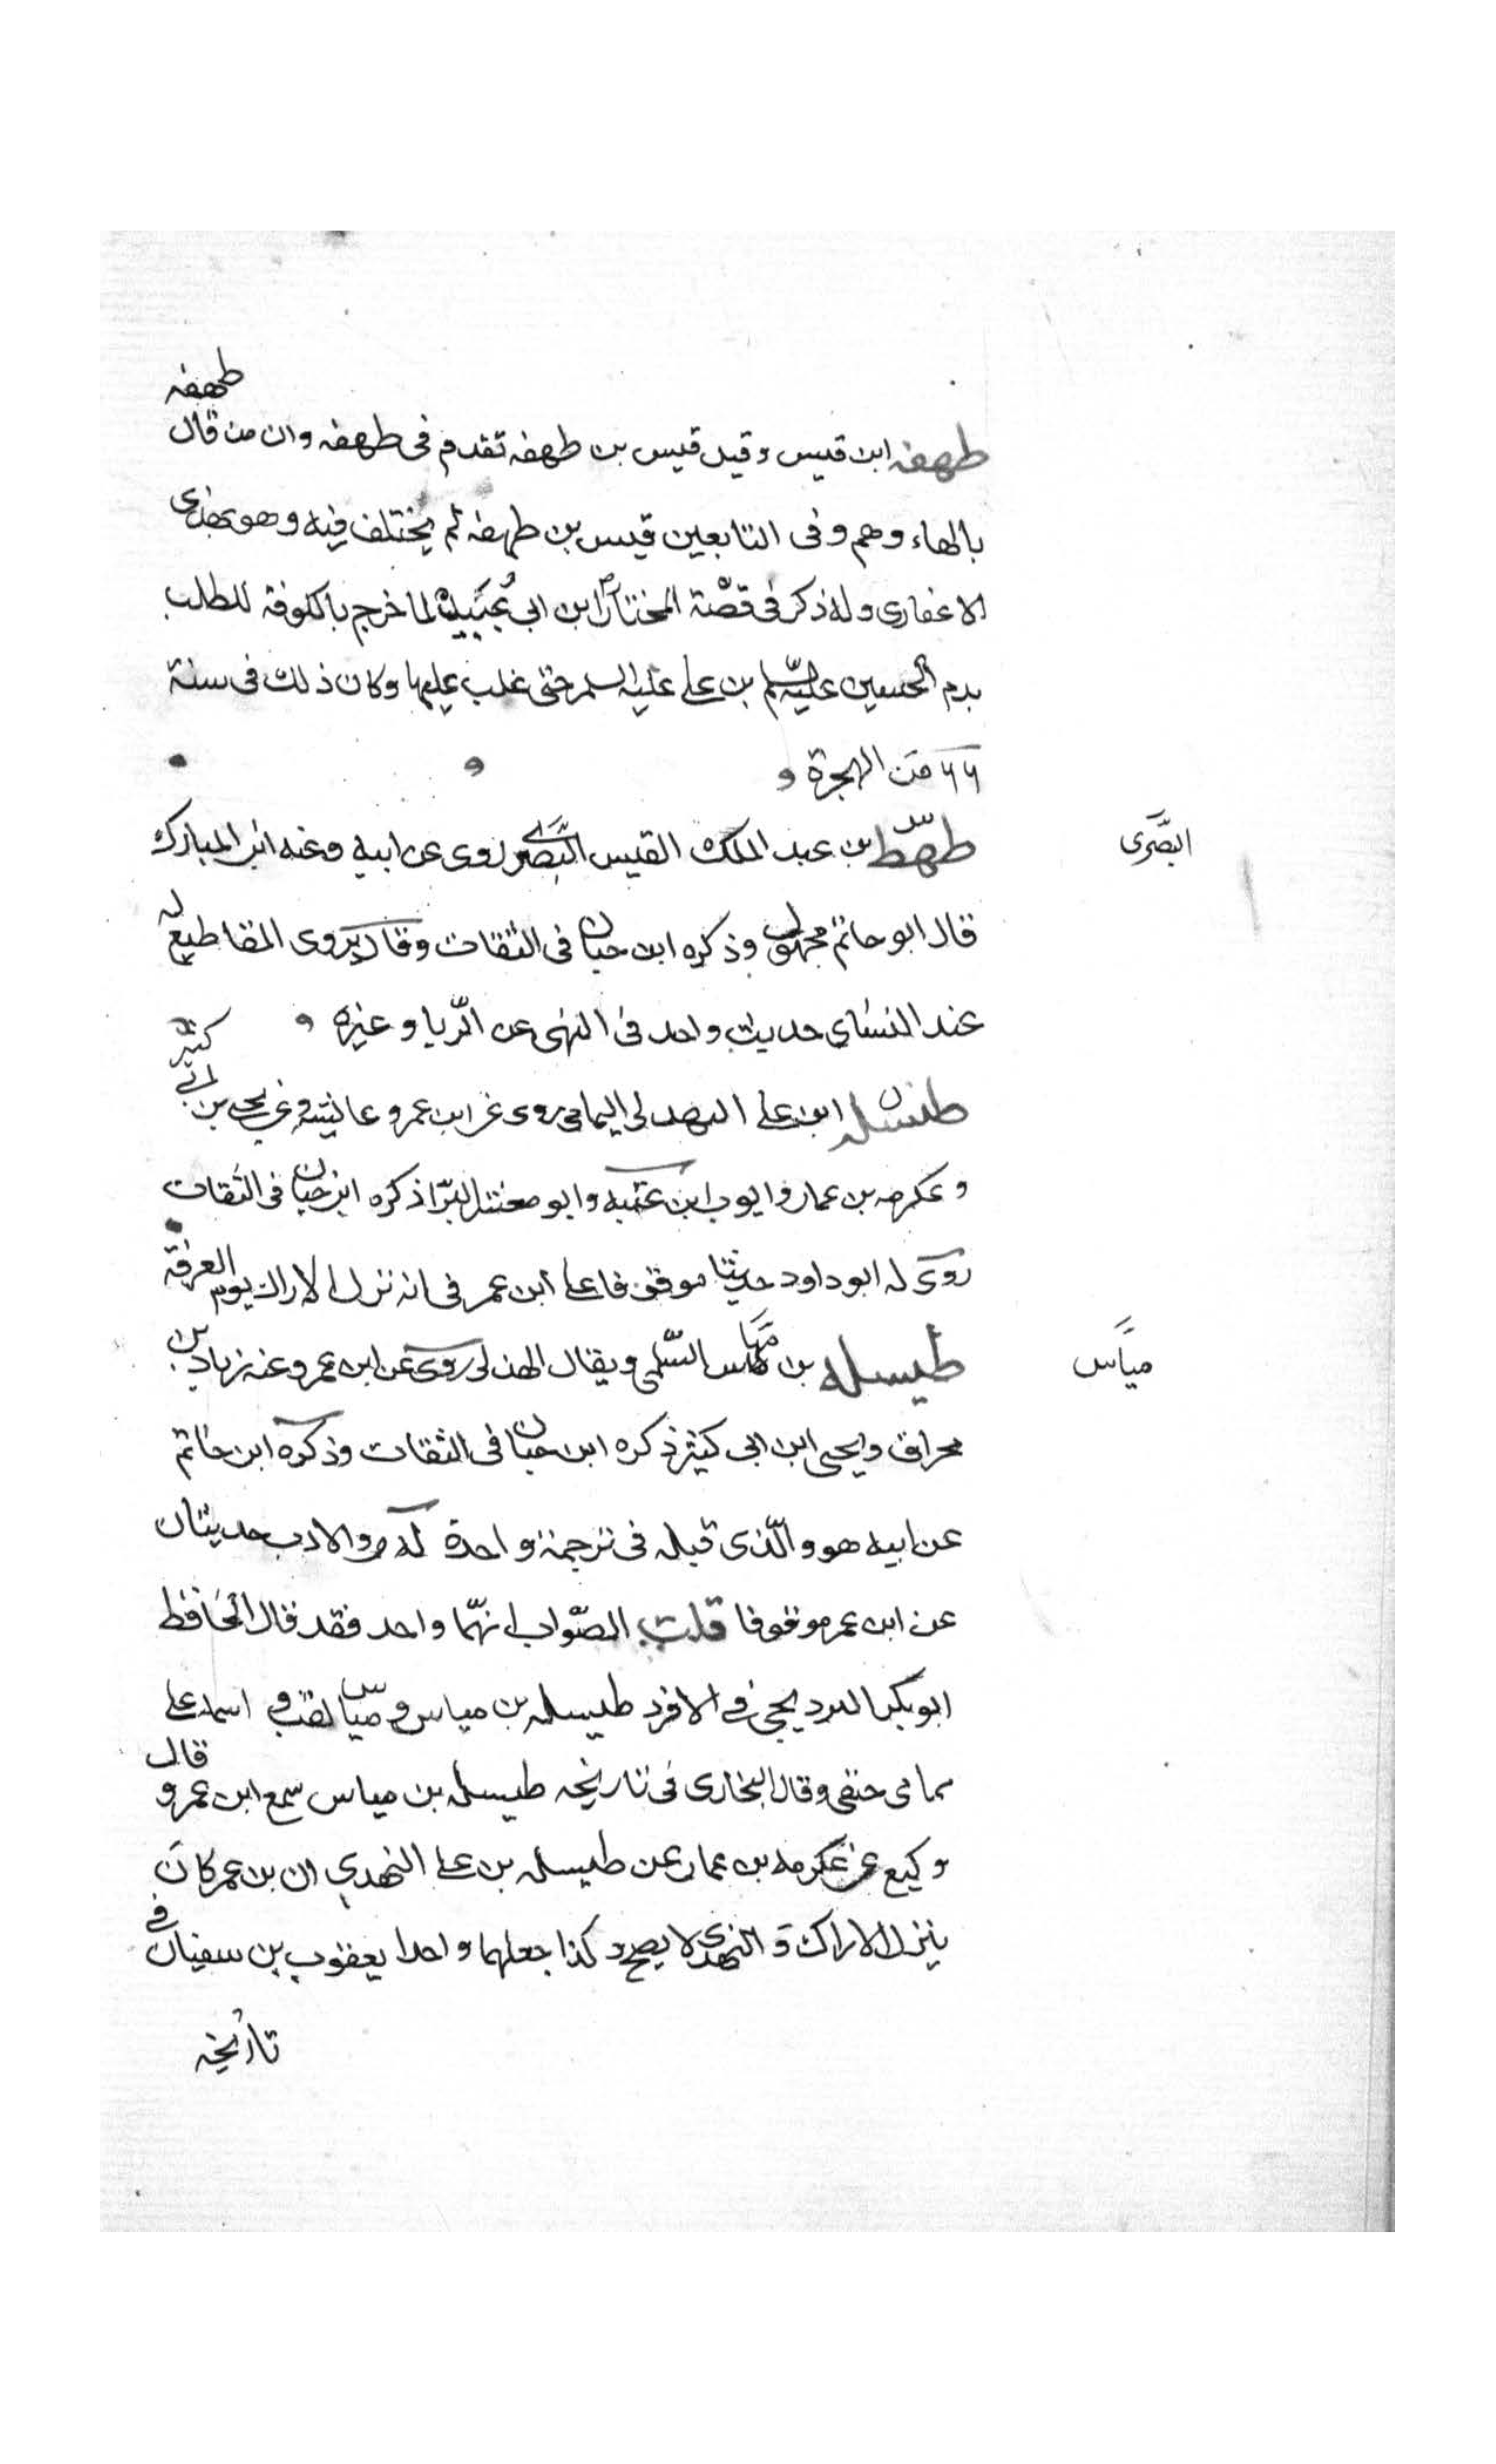 طهفه ابن قيس وقيل قيس بن طهفه تقدم فى طهفه وان من قال طهفه
بالهاء وهم وفى التابعين قيس بن طهفه لم يختلف فيه وهو
الاغفارى وله ذكر فى قصّة المختار ابن ابى عبيد لما خرج بالكوفة للطلب
بدم الحسين عليه السلم بن على عليه السلم حتى غلب عليها وكان ذلك فى سنة
٦٦ من الهجرة
البصَّرى
بن عبد الملك القيس البصرى روى عن ابيه وعنه ابن المبارك
قال ابو حاتم مجهول وذكره ابن حبان فى الثقات وقال يروى المقاطيع له
عند النسَاى حديث واحد فى النهى عن الرّيا وغيره
طيسله ابن على البهدلى اليمامى روى عن ابن عمر وعائشه وعنه يحيى بن ابى كثير
وعكرمه بن عمار وايوب ابن عتبه وابو معشر البرّا ذكره ابن حبان فى الثقات
روى له ابو داود حديثا موقوفا على ابن عمر فى انه نزل الاراك يوم العرفة
ميَّاس
طيسله بن ميّاس السّلمى ويقال الهذلى روى عن ابن عمر وعنه زياد بن
محراق ويحيى ابن ابى كثير ذكره ابن حبان فى الثقات وذكره ابن حاتم
عن ابيه هو والّذى قبله فى ترجمة واحدة له فى الادب حديثان
عن ابن عمر موقوفا قلت الصّواب انهّما واحد فقد قال الحَافظ
ابو بكر البرديجى فى الافرد طيسله بن مياس وميّاس لقب و اسمه على
يمامى حنفى وقال البخارى فى تاريخه طيسله بن مياس سمع ابن عمر وقال
وكيع عن عكرمه بن عمار عن طيسله بن على النهدي ان بن عمر كان
ينزل الاراك و النهدى لا يصح وكذا جعلهما واحدا يعقوب بن سفيان فى
تاريخه